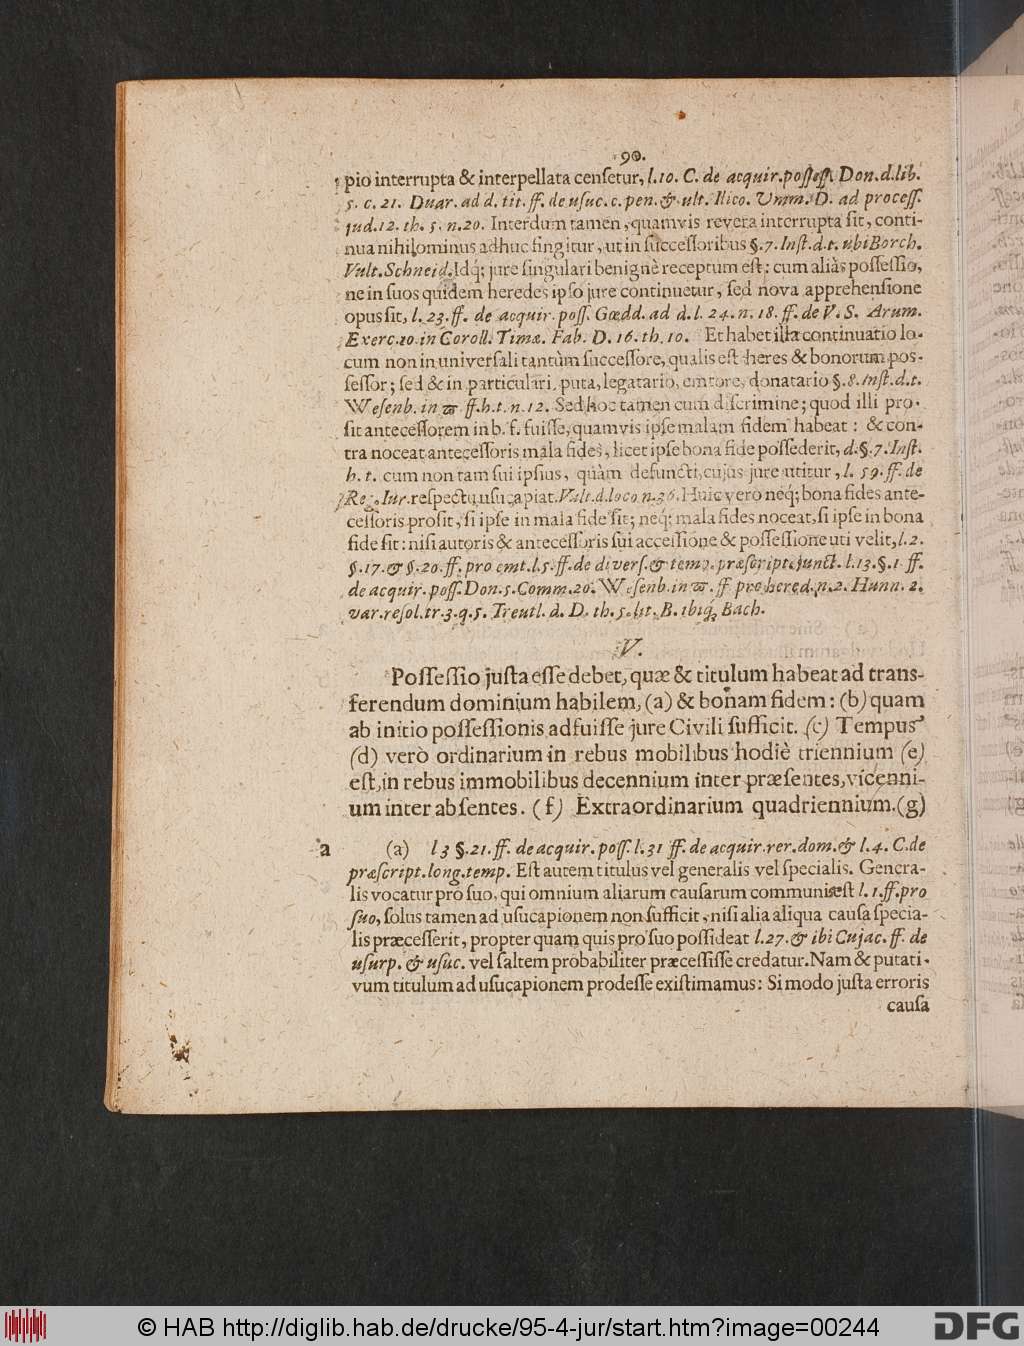 90.
pio interrupta & interpellata censetur, l.10. C. de acquir. possess. Don. d. lib.
5. c. 21. Duar. ad d. tit. ff. de usuc. c. pen. & ult. Ilico. Umm. D. ad process.
jud. 12. th. 5. n. 20. Interdum tamen, quamvis revera interrupta sit, conti-
nua nihilominus adhuc fingitur, ut in successoribus §. 7. Inst. d. t. ubi Borch.
Vult. Schneid. Idq; jure singulari benignè receptum est: cum aliàs possessio,
ne in suos quidem heredes ipso jure continuetur, sed nova apprehensione
opus sit, l. 23. ff. de acquir. poss. Gœdd. ad d. l. 24. n. 18. ff. de V. S. Arum.
Exerc. 10. in Coroll. Timæ. Fab. D. 16. th. 10. Et habet illa continuatio lo-
cum non in universali tantùm successore, qualis est heres & bonorum pos-
sessor; sed & in particulari, puta, legatario, emtore, donatario §. 8. Inst. d. t.
Wesenb. in ϖ ff. h. t. n. 12. Sed hoc tamen cum discrimine; quod illi pro-
sit antecessorem in b. f. fuisse, quamvis ipse malam fidem habeat: & con-
tra noceat antecessoris mala fides, licet ipse bona fide possederit, d. §. 7. Inst.
h. t. cum non tam sui ipsius, quàm defuncti, cujus jure utitur, l. 59. ff. de
Reg. Iur. respectu usucapiat. Vult. d. loco n. 36. Huic vero neq; bona fides ante-
cessoris prosit, si ipse in mala fide sit; neq; mala fides noceat, si ipse in bona
fide sit: nisi autoris & antecessoris sui accessione & possessione uti velit, l. 2.
§. 17. & §. 20. ff. pro emt. l. 5. ff. de divers. & temp. præscript. junct. l. 13. §. 1. ff.
de acquir. poss. Don. 5. Comm. 20. Wesenb. in ϖ. ff pro hered. n. 2. Hunn. 2.
var. resol. tr. 3. q. 5. Treutl. d. D. th. 5. lit. B. ibiq; Bach.
V.
Possessio justa esse debet, quæ & titulum habeat ad trans-
ferendum dominium habilem, (a) & bonam fidem: (b) quam
ab initio possessionis adfuisse jure Civili sufficit. (c) Tempus
(d) verò ordinarium in rebus mobilibus hodiè triennium (e)
est, in rebus immobilibus decennium inter præsentes, vicenni-
um inter absentes. (f) Extraordinarium quadriennium. (g)
a (a) l 3 §. 21. ff. de acquir. poss. l. 31 ff. de acquir. rer. dom. & l. 4. C. de
præscript. long. temp. Est autem titulus vel generalis vel specialis. Genera-
lis vocatur pro suo, qui omnium aliarum causarum communis est l. 1. ff. pro
suo, solus tamen ad usucapionem non sufficit, nisi alia aliqua causa specia-
lis præcesserit, propter quam quis pro suo possideat l. 27. & ibi Cujac. ff. de
usurp. & usuc. vel saltem probabiliter præcessisse credatur. Nam & putati-
vum titulum ad usucapionem prodesse existimamus: Si modo justa erroris
causa
© HAB http://diglib.hab.de/drucke/95-4-jur/start.htm?image=00244
DFG